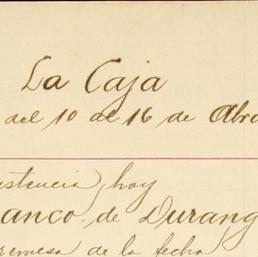 La Caja
del 10 al 16 de Abr
istencia hoy
anco de Durang
remesa de la fecha